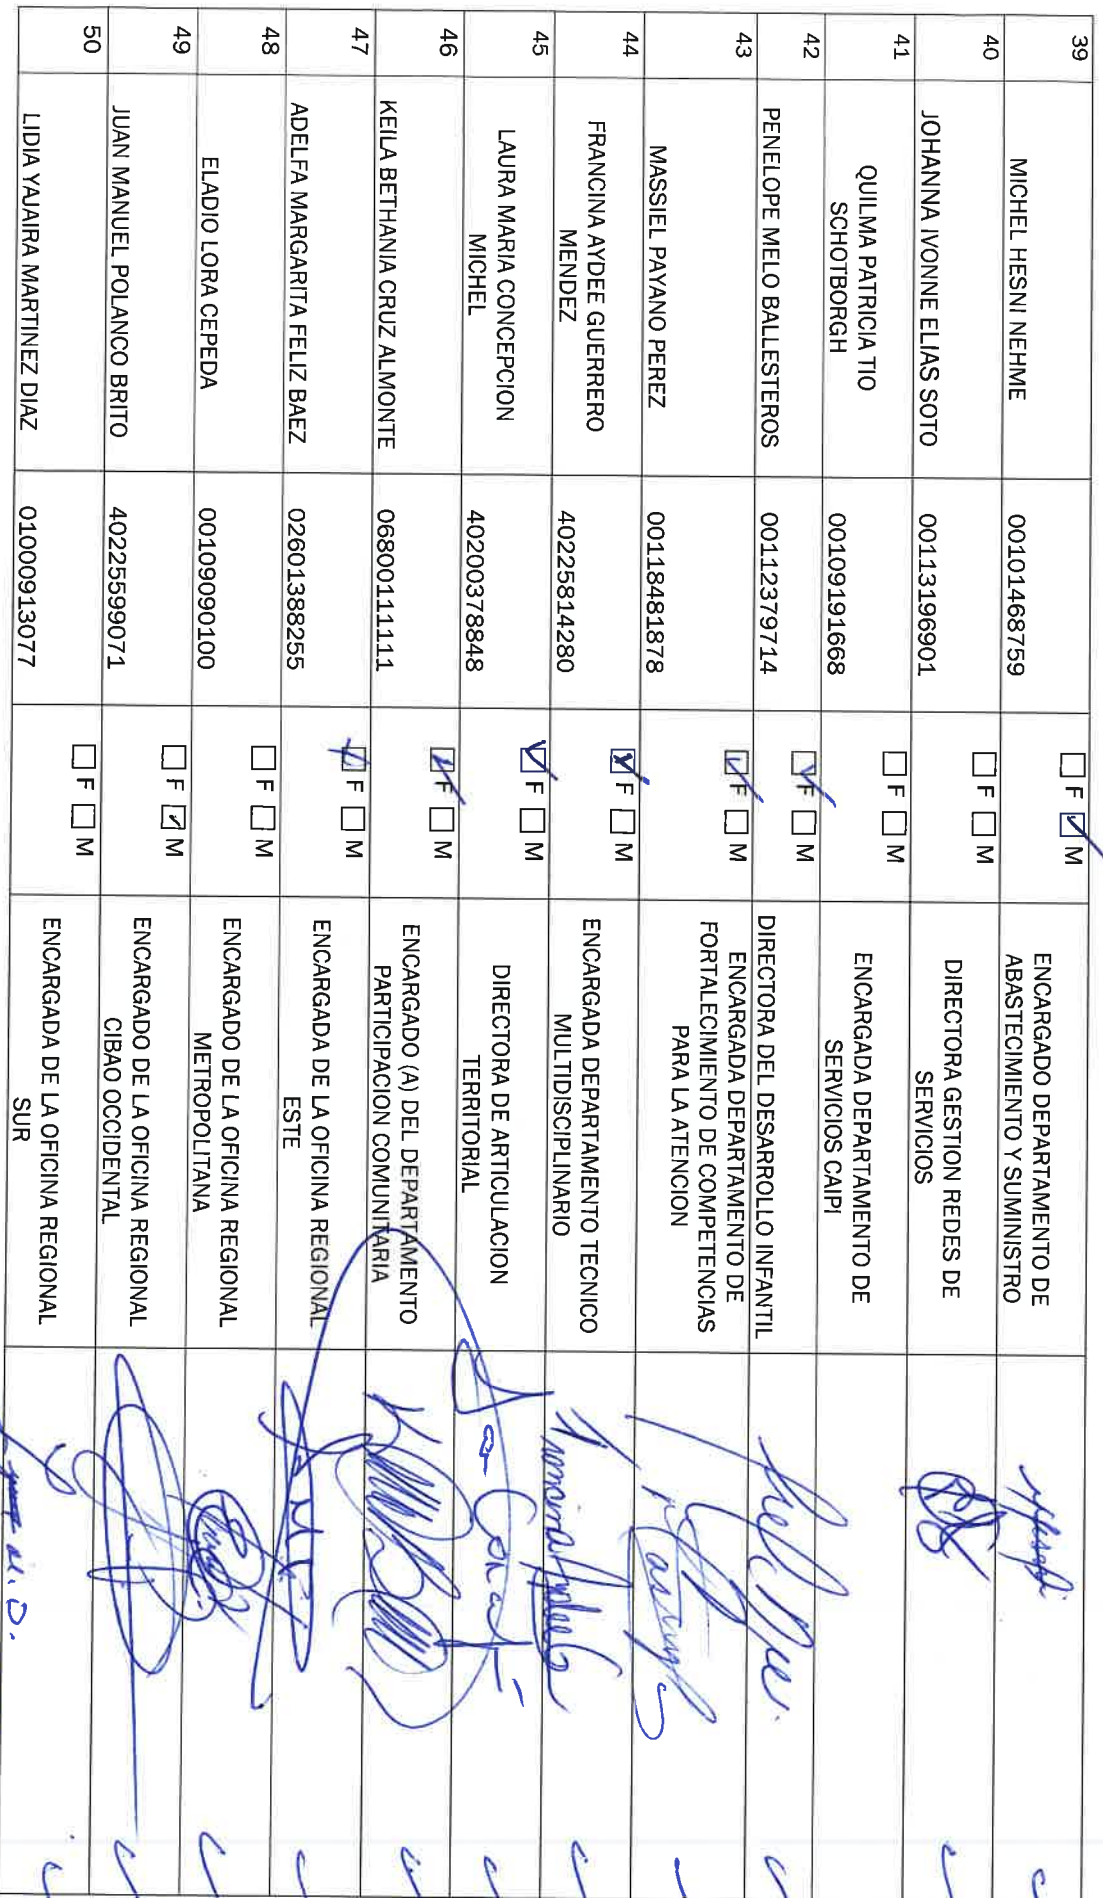 39 MICHEL HESNI NEHME 00101468759 ☐ F ☑ M ENCARGADO DEPARTAMENTO DE
ABASTECIMIENTO Y SUMINISTRO
40 JOHANNA IVONNE ELIAS SOTO 00113196901 ☐ F ☐ M DIRECTORA GESTION REDES DE
SERVICIOS
41 QUILMA PATRICIA TIO
SCHOTBORGH 00109191668 ☐ F ☐ M ENCARGADA DEPARTAMENTO DE
SERVICIOS CAIPI
42 PENELOPE MELO BALLESTEROS 00112379714 ☑ F ☐ M DIRECTORA DEL DESARROLLO INFANTIL
43 MASSIEL PAYANO PEREZ 00118481878 ☑ F ☐ M ENCARGADA DEPARTAMENTO DE
FORTALECIMIENTO DE COMPETENCIAS
PARA LA ATENCION
44 FRANCINA AYDEE GUERRERO
MENDEZ 40225814280 ☑ F ☐ M ENCARGADA DEPARTAMENTO TECNICO
MULTIDISCIPLINARIO
45 LAURA MARIA CONCEPCION
MICHEL 40200378848 ☑ F ☐ M DIRECTORA DE ARTICULACION
TERRITORIAL
46 KEILA BETHANIA CRUZ ALMONTE 06800111111 ☑ F ☐ M ENCARGADO (A) DEL DEPARTAMENTO
PARTICIPACION COMUNITARIA
47 ADELFA MARGARITA FELIZ BAEZ 02601388255 ☑ F ☐ M ENCARGADA DE LA OFICINA REGIONAL
ESTE
48 ELADIO LORA CEPEDA 00109090100 ☐ F ☐ M ENCARGADO DE LA OFICINA REGIONAL
METROPOLITANA
49 JUAN MANUEL POLANCO BRITO 40225599071 ☐ F ☑ M ENCARGADO DE LA OFICINA REGIONAL
CIBAO OCCIDENTAL
50 LIDIA YAJAIRA MARTINEZ DIAZ 01000913077 ☐ F ☐ M ENCARGADA DE LA OFICINA REGIONAL
SUR